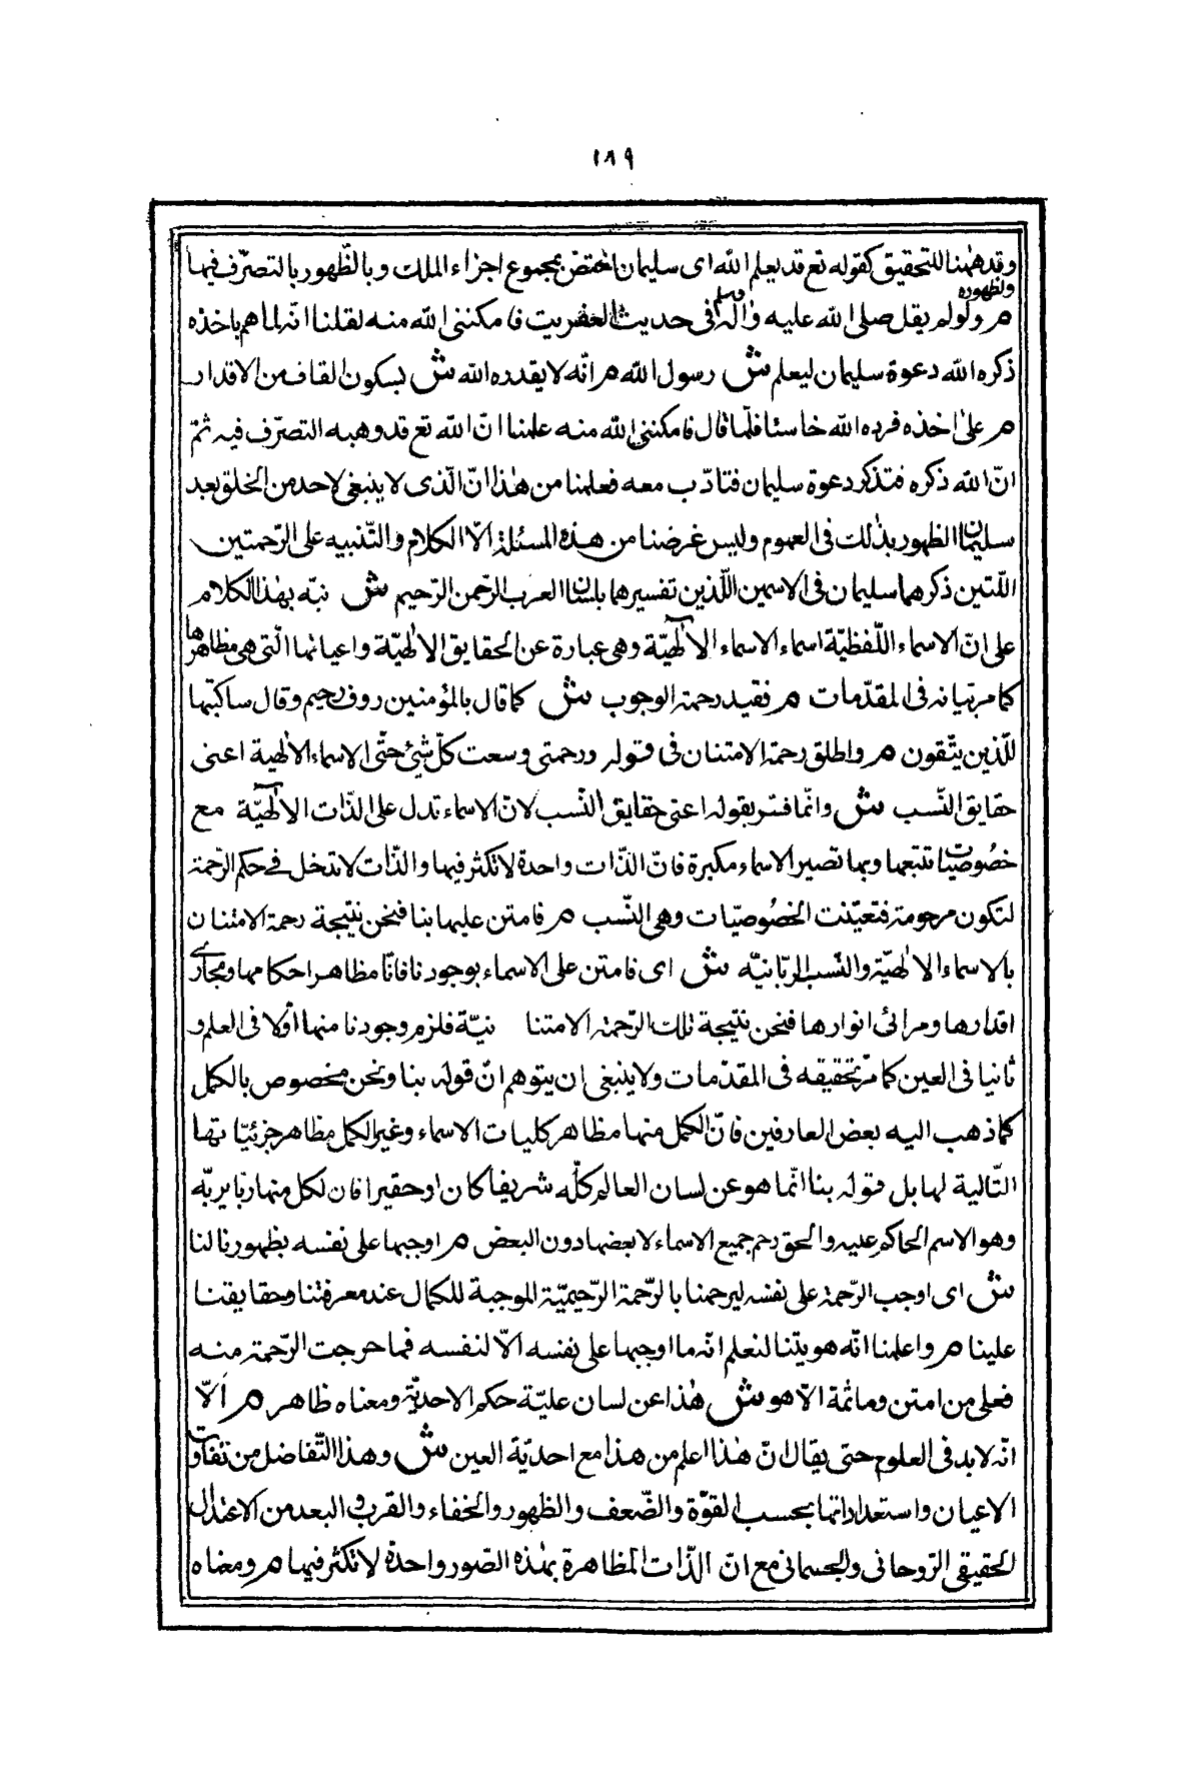 ١٨٩
وقد ههنا للتحقيق كقوله تع قد يعلم الله اى سليمان اختص بمجموع اجزاء الملك وبالظهور بالتصرّف فيها
ولظهوره
م ولو لم يقل صلى الله عليه وآله وسلم فى حديث العفريت فامكننى الله منه لقلنا انّه لما هم باخذه
ذكره الله دعوة سليمان ليعلم ش رسول الله م انّه لا يقدره الله ش بسكون القاف من الاقدار
م على اخذه فرده الله خاسئا فلمّا قال فامكننى الله منه علمنا انّ الله تع قد وهبه التصرّف فيه ثمّ
انّ الله ذكره فتذكر دعوة سليمان فتادّب معه فعلمنا من هذا انّ الّذى لا ينبغى لاحد من الخلق بعد
سليمان الظهور بذلك فى العموم وليس غرضنا من هذه المسئلة الّا الكلام والتّنبيه على الرّحمتين
اللّتين ذكرهما سليمان فى الاسمين اللّذين تفسيرهما بلسان العرب الرّحمن الرّحيم ش نبّه بهذا الكلام
على انّ الاسماء اللّفظيّة اسماء الاسماء الالٰهيّة وهى عبارة عن الحقايق الالٰهيّة واعيانها الّتى هى مظاهرها
كما مر بيانه فى المقدّمات م فقيد رحمة الوجوب ش كما قال بالمؤمنين روف رحيم وقال ساكتبها
للّذين يتّقون م واطلق رحمة الامتنان فى قوله ورحمتى وسعت كلّ شئ حتّى الاسماء الالٰهية اعنى
حقايق النّسب ش وانّما فسّر بقوله اعنى حقايق النّسب لانّ الاسماء تدل على الذّات الالٰهيّة مع
خصُوصيّات تتبعها وبها تصير الاسماء مكبرة فانّ الذّات واحدة لا تكثر فيها والذّات لا تدخل فى حكم الرّحمة
لتكون مرحومة فتعيّنت الخصُوصيّات وهى النّسب م فامتن عليها بنا فنحن نتيجة رحمة الامتنان
بالاسماء الالٰهيّة والنّسب الربّانيّه ش اى فامتن على الاسماء بوجودنا فانّا مظاهر احكامها ومجارى
اقدارها ومرائى انوارها فنحن نتيجة تلك الرّحمة الامتنا نيّة فلزم وجودنا منها اوّلا فى العلم و
ثانيا فى العين كما مرّ تحقيقه فى المقدّمات ولا ينبغى ان يتوهم انّ قوله بنا ونحن مخصوص بالكمل
كما ذهب اليه بعض العارفين فانّ الكمل منها مظاهر كليات الاسماء وغير الكمل مظاهر جزئيّاتها
التّالية لها بل قوله بنا انّما هو عن لسان العالم كلّه شريفا كان او حقيرا فان لكل منها ربّا يربّه
وهو الاسم الحاكم عليه والحق رحم جميع الاسماء لا بعضها دون البعض م اوجبها على نفسه بظهورنا لنا
ش اى اوجب الرّحمة على نفسه ليرحمنا بالرّحمة الرّحيميّة الموجبة للكمال عند معرفتنا وحقايقنا
علينا م واعلمنا انّه هويتنا لنعلم انّه ما اوجبها على نفسه الّا لنفسه فما خرجت الرّحمة منه
فعلى من امتن وما ثمة الّا هو ش هذا عن لسان غلبة حكم الاحديّة ومعناه ظاهر م الّا
انّه لا بد فى العلوم حتى يقال انّ هذا اعلم من هذا مع احديّة العين ش وهذا التّفاضل من تفاوت
الاعيان واستعداداتها بحسب القوّة والضّعف والظهور والخفاء والقرب والبعد من الاعتدال
الحقيقى الرّوحانى والجسمانى مع انّ الذّات الظاهرة بهذه الصّور واحدة لا تكثر فيها م ومعناه